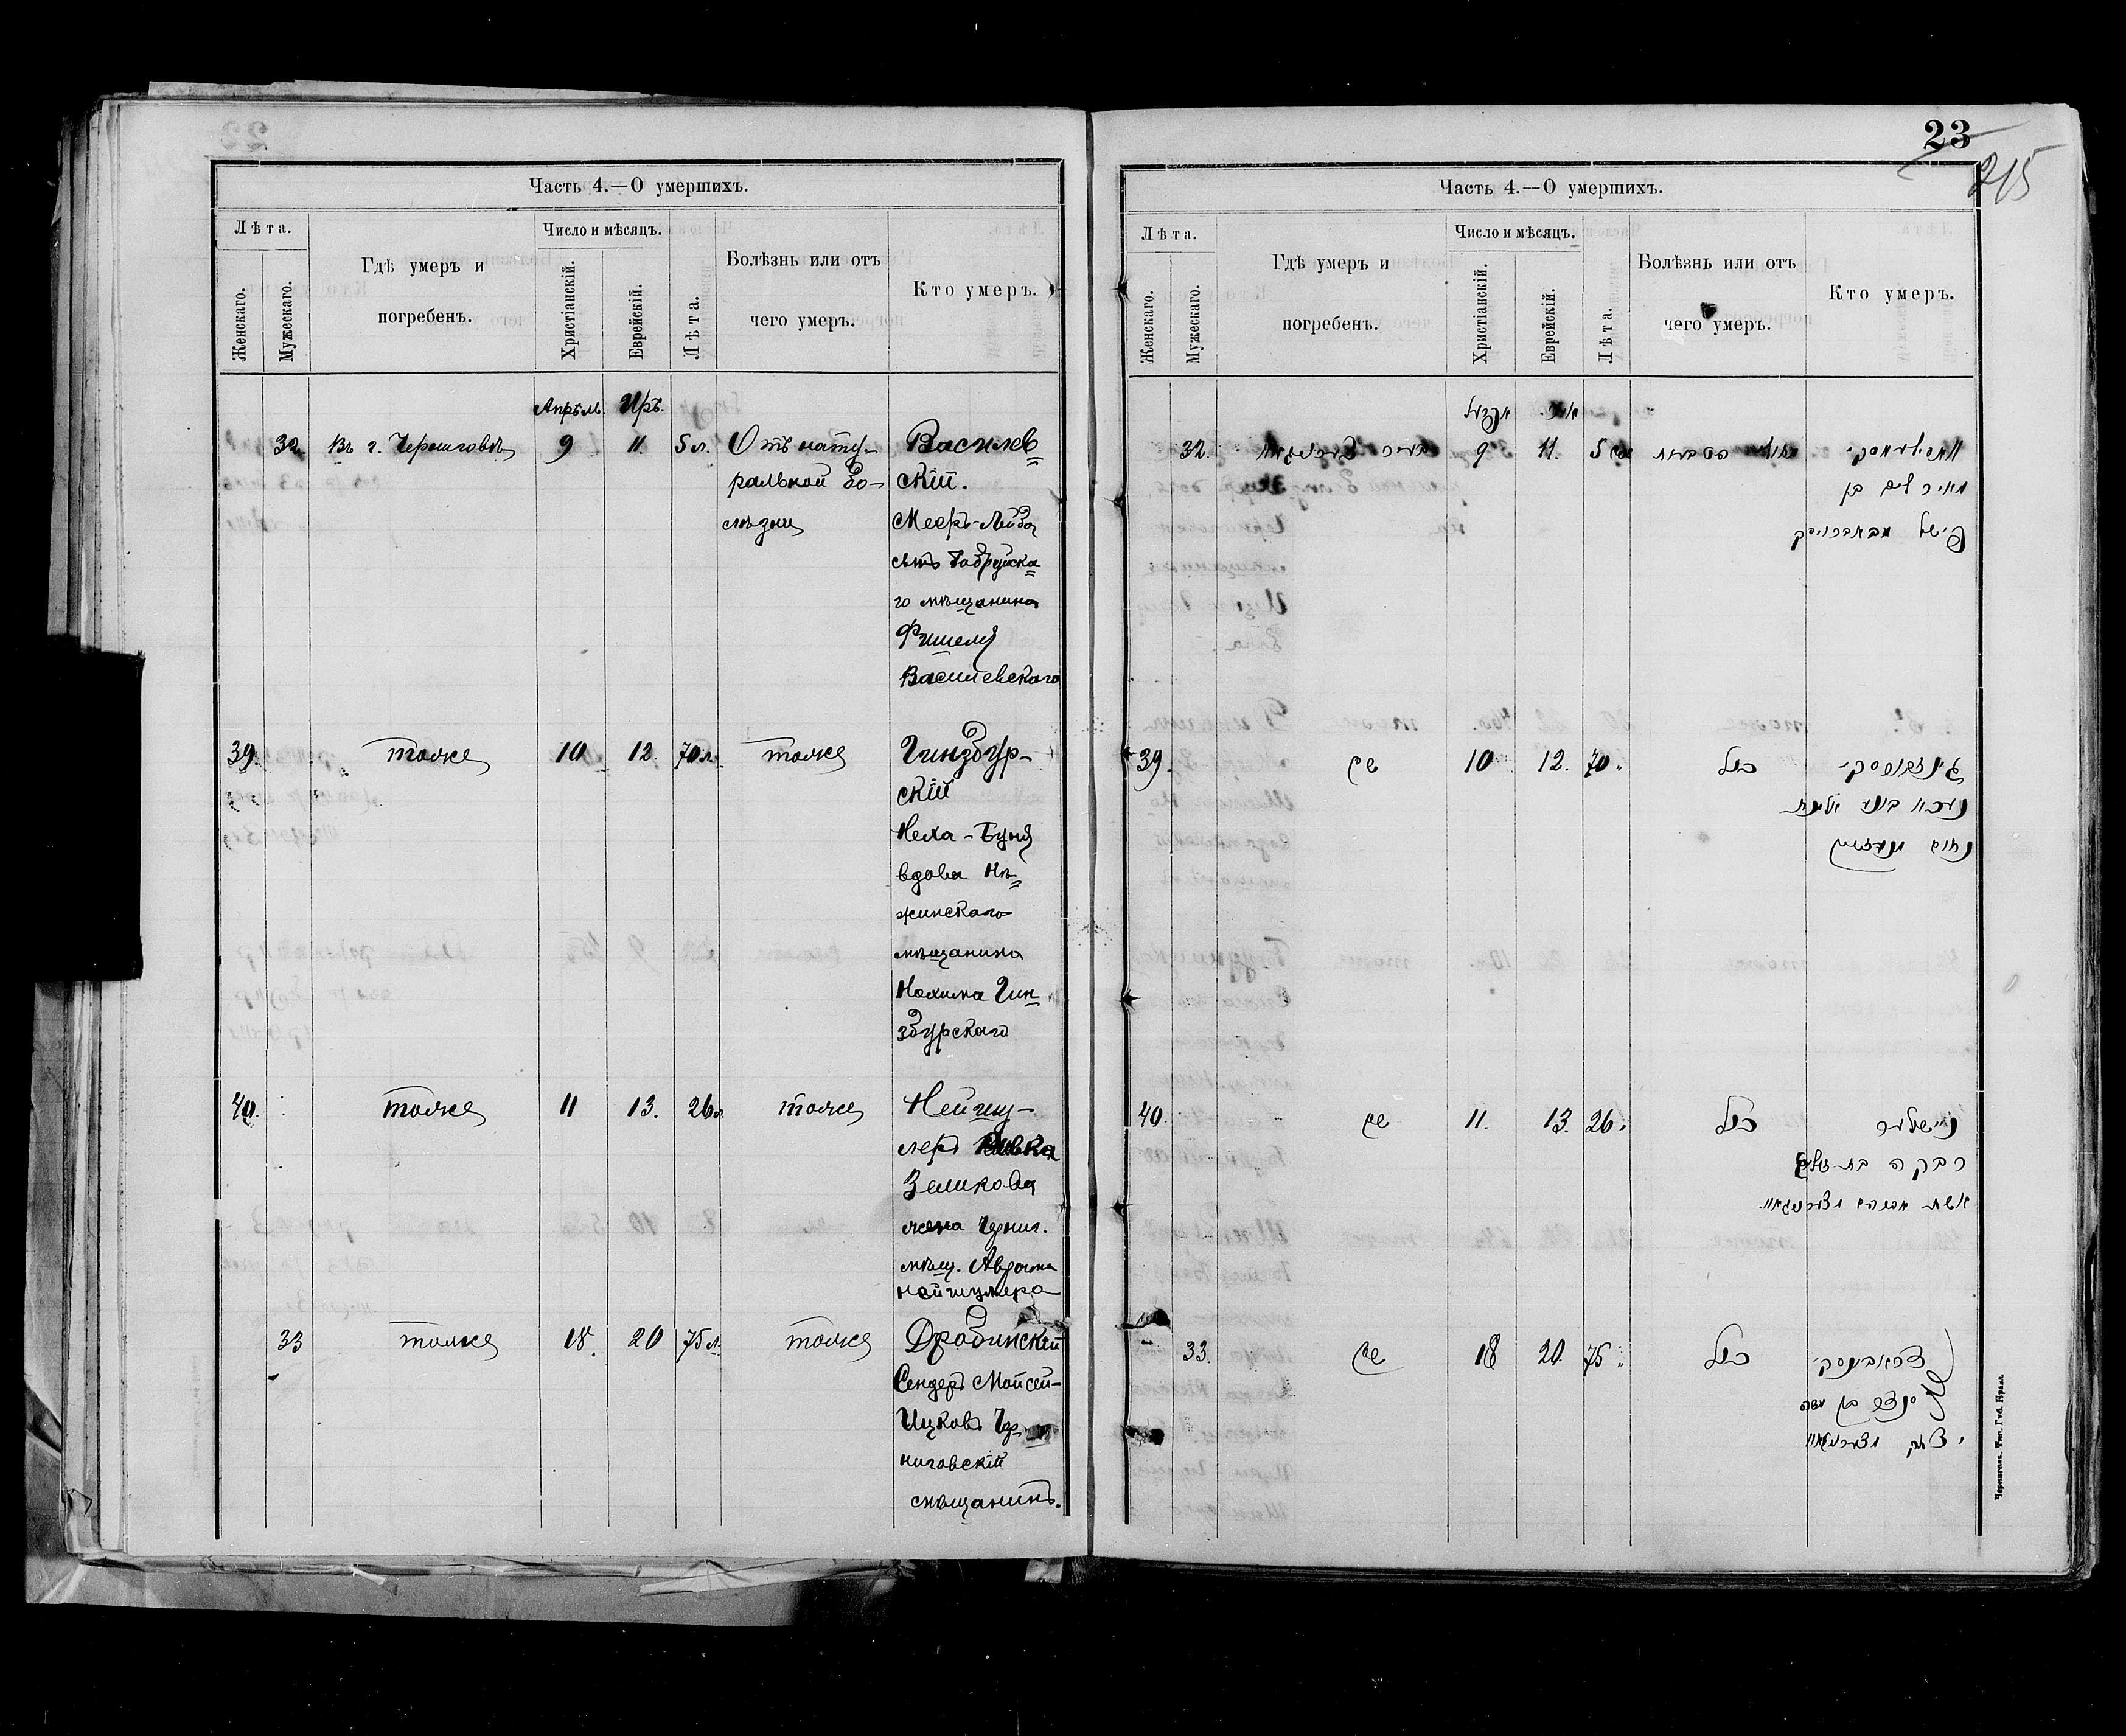 22
Часть 4.—О умершихъ.
Лѣта.
Женскаго.
Мужескаго.
Гдѣ умеръ и
погребенъ.
Число и мѣсяцъ.
Христіанскій.
Еврейскій.
Лѣта.
Болѣзнь или отъ
чего умеръ.
Кто умеръ.
Апрѣль. Іръ.
32. Въ г. Черниговѣ 9 11. 5 л. Отъ нату-
ральной бо-
лѣзни
Василев
скій.
Мееръ-Лейба
сынъ Бобруйска
го мѣщанина
Фишеля
Василевскаго
39. тоже 10 12. 70 л. тоже Гинзбур-
скій
Неха-Буня
вдова Нѣ
жинскаго
мѣщанина
Нохима Гин
збурскаго
40. тоже 11 13. 26 л. тоже Нейшу-
леръ Ривка
Зеликова
жена Черниг.
мѣщ. Аврома
Нейшулера
33 тоже 18. 20 75 л. тоже Дробинскій
Сендеръ Мойсей-
Ицковъ Чер
ниговскій
мѣщанинъ.
23
215
Часть 4.—О умершихъ.
Лѣта.
Женскаго.
Мужескаго.
Гдѣ умеръ и
погребенъ.
Число и мѣсяцъ.
Христіанскій.
Еврейскій.
Лѣта.
Болѣзнь или отъ
чего умеръ.
Кто умеръ.
32. 9 11. 5
מאיר ליב בן
פישל מבאברויסק
39. שם 10 12. 70 כנ״ל
40. שם 11. 13. 26 כנ״ל
רבקה בת
אשת אברהם
33. שם 18 20. 75 כנ״ל
בן משה
יצחק
Чернигов. Тип. Губ. Правл.